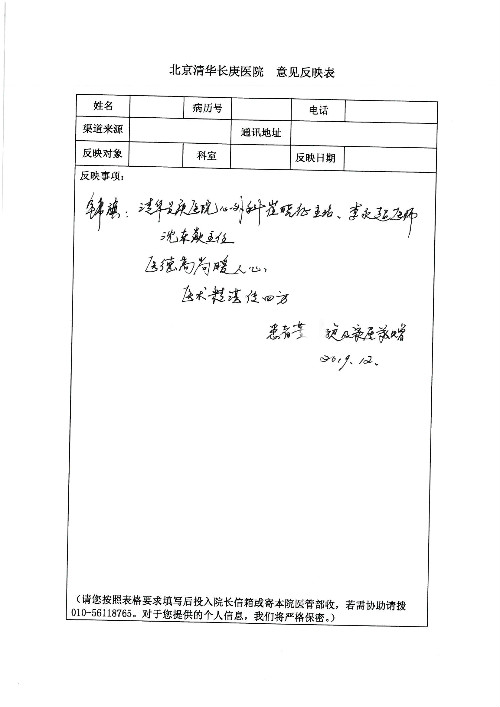 北京清华长庚医院 意见反映表
姓名 病历号 电话
渠道来源 通讯地址
反映对象 科室 反映日期
反映事项：
锦旗：清华长庚医院心外科崔晓征主治、李永超医师
沈东焱主任
医德高尚暖人心，
医术精湛传四方
患者 及家属敬赠
2019.12.
(请您按照表格要求填写后投入院长信箱或寄本院医管部收，若需协助请拨
010-56118765。对于您提供的个人信息，我们将严格保密。)